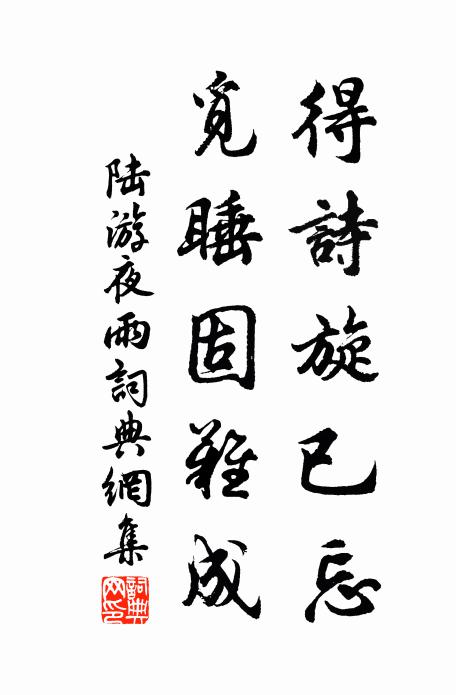 得詩旋已忘
覓睡固難成
陸游夜雨詞典網集
詞典網印